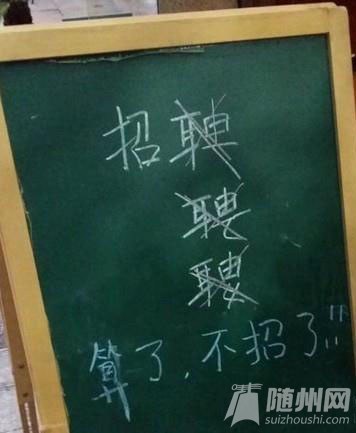 招聘
聘
聘
算了，不招了!!!
随州网
suizhoushi.com